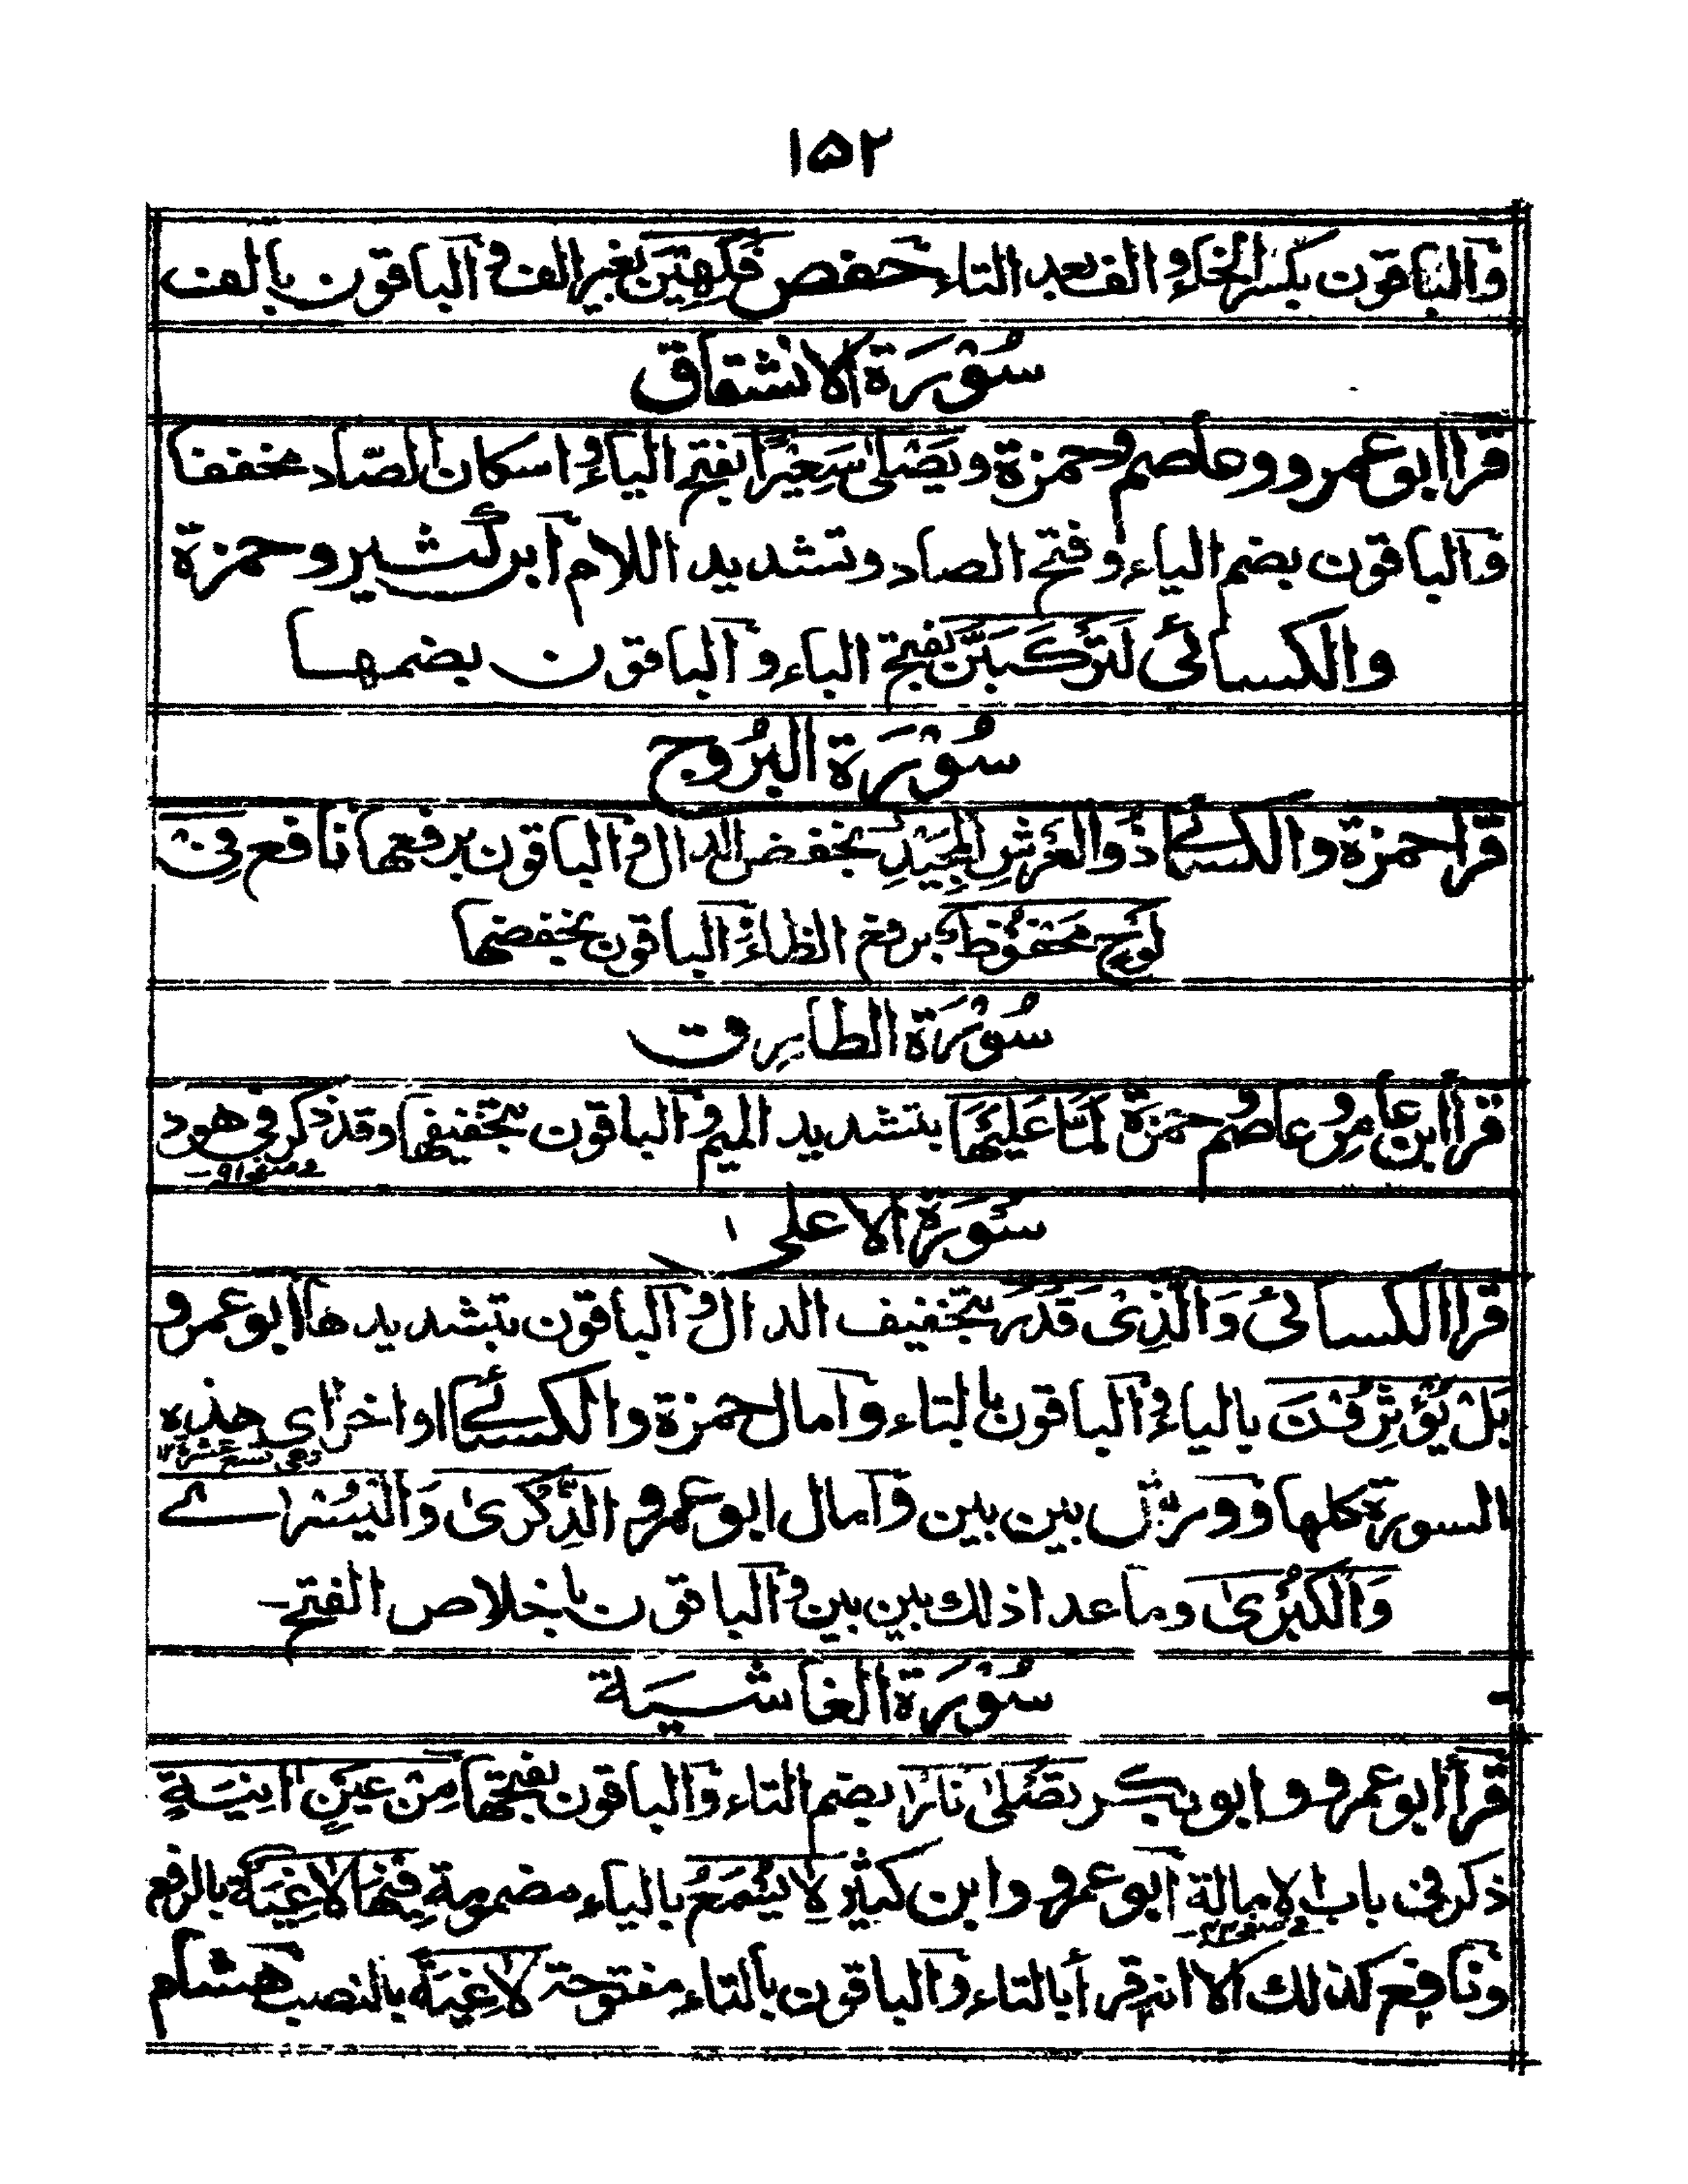 ۱۵۲
والباقون بكسر الخاء و الف بعد التاء حفص فكهين بغير الف و الباقون بالف
سُوْرَة الانشقاق
قرأ ابو عمرو و عاصم و حمزة و يَصْلٰى سَعِيْرًا بفتح الياء و اسكان الصّاد مخففا
والباقون بضم الياء و فتح الصاد و تشديد اللام ابن كثير و حمزة
والكسائى لَتَرْكَبَنَّ بفتح الباء و الباقون بضمها
سُوْرَة البُرُوج
قرأ حمزة و الكسائى ذُو الْعَرْشِ الْمَجِيْدِ بخفض الدال و الباقون برفعها نافع فِىْ
لَوْحٍ مَحْفُوْظٌ برفع الظاء و الباقون بخفضها
سُوْرَة الطارق
قرأ ابن عامر و عاصم و حمزة لَمَّا عَلَيْهَا بتشديد الميم و الباقون بتخفيفها و قد ذكر فى هود
فى صفحه ۹۱ -
سُوْرَة الاعلى
قرأ الكسائى وَالَّذِىْ قَدَرَ بتخفيف الدال و الباقون بتشديدها ابو عمرو
بَلْ يُؤْثِرُوْنَ بالياء و الباقون بالتاء و امال حمزة و الكسائى اواخر اى هذه
وهى تسع عشرة ۱۲
السورة كلها و ورش بين بين و امال ابو عمرو الذِّكْرٰى وَالْيُسْرٰى
وَالْكُبْرٰى و ما عدا ذلك بين بين و الباقون باخلاص الفتح -
سُوْرَة الغاشية
قرأ ابو عمرو و ابو بكر تُصْلٰى نَارًا بضم التاء و الباقون بفتحها مِنْ عَيْنٍ اٰنِيَةٍ
ذكر فى باب الامالة ابو عمرو و ابن كثير لَا يُسْمَعُ بالياء مضمومة فِيْهَا لَاغِيَةٌ بالرفع
فى صفحه
ونافع كذلك الا انه قرأ بالتاء و الباقون بالتاء مفتوحة لَاغِيَةً بالنصب هشام